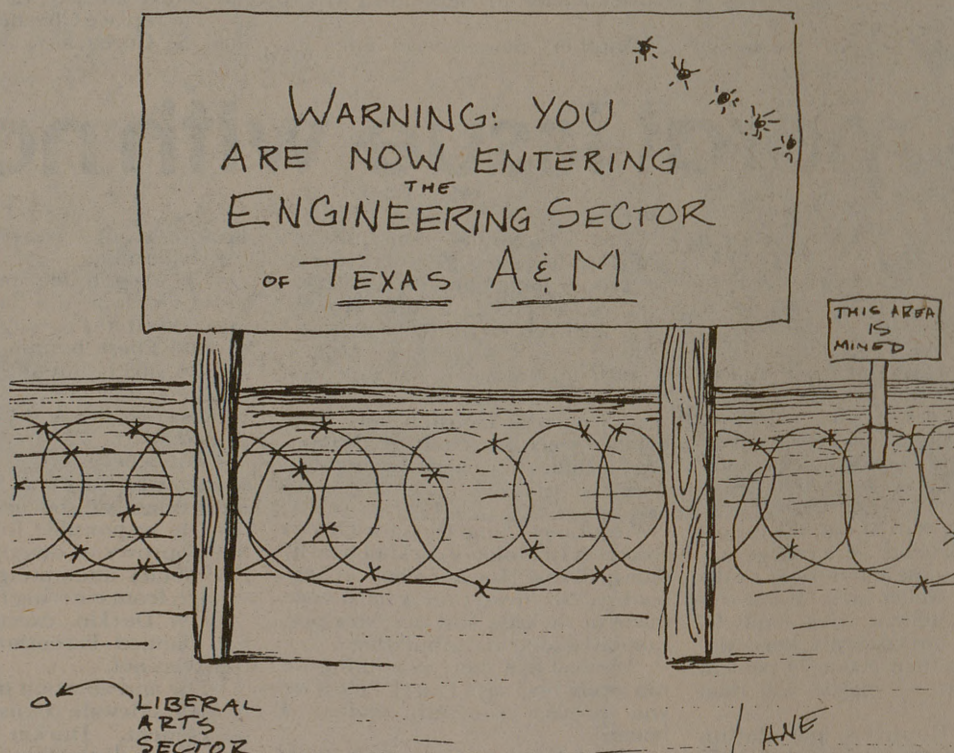 WARNING: YOU
ARE NOW ENTERING
THE
ENGINEERING SECTOR
OF TEXAS A & M
THIS AREA
IS
MINED
LIBERAL
ARTS
SECTOR